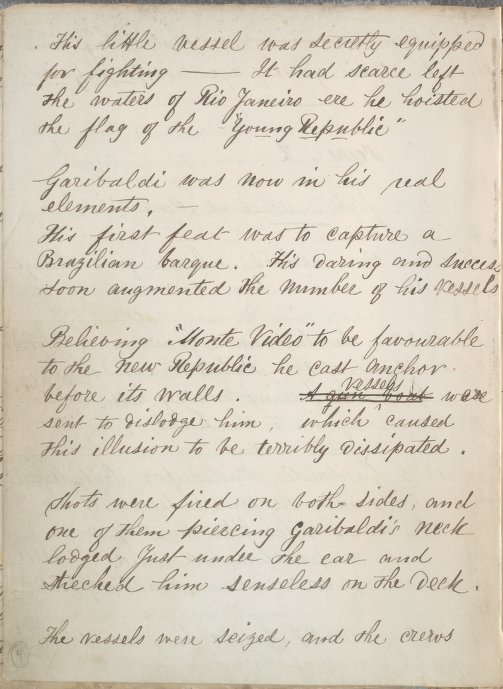 . His little vessel was secretly equipped
for fighting —— It had scarce left
the waters of Rio Janeiro ere he hoisted
the flag of the "Young Republic"
Garibaldi was now in his real
elements. —
His first feat was to capture a
Brazilian barque. His daring and success
soon augmented the number of his vessels
Believing "Monte Video" to be favourable
to the new Republic he cast anchor
before its walls. A gun boat vessels were
sent to dislodge him, which caused
this illusion to be terribly dissipated.
Shots were fired on both sides, and
one of them piercing Garibaldi's neck
lodged just under the ear and
him senseless on the deck.
The vessels were seized, and the crews
4